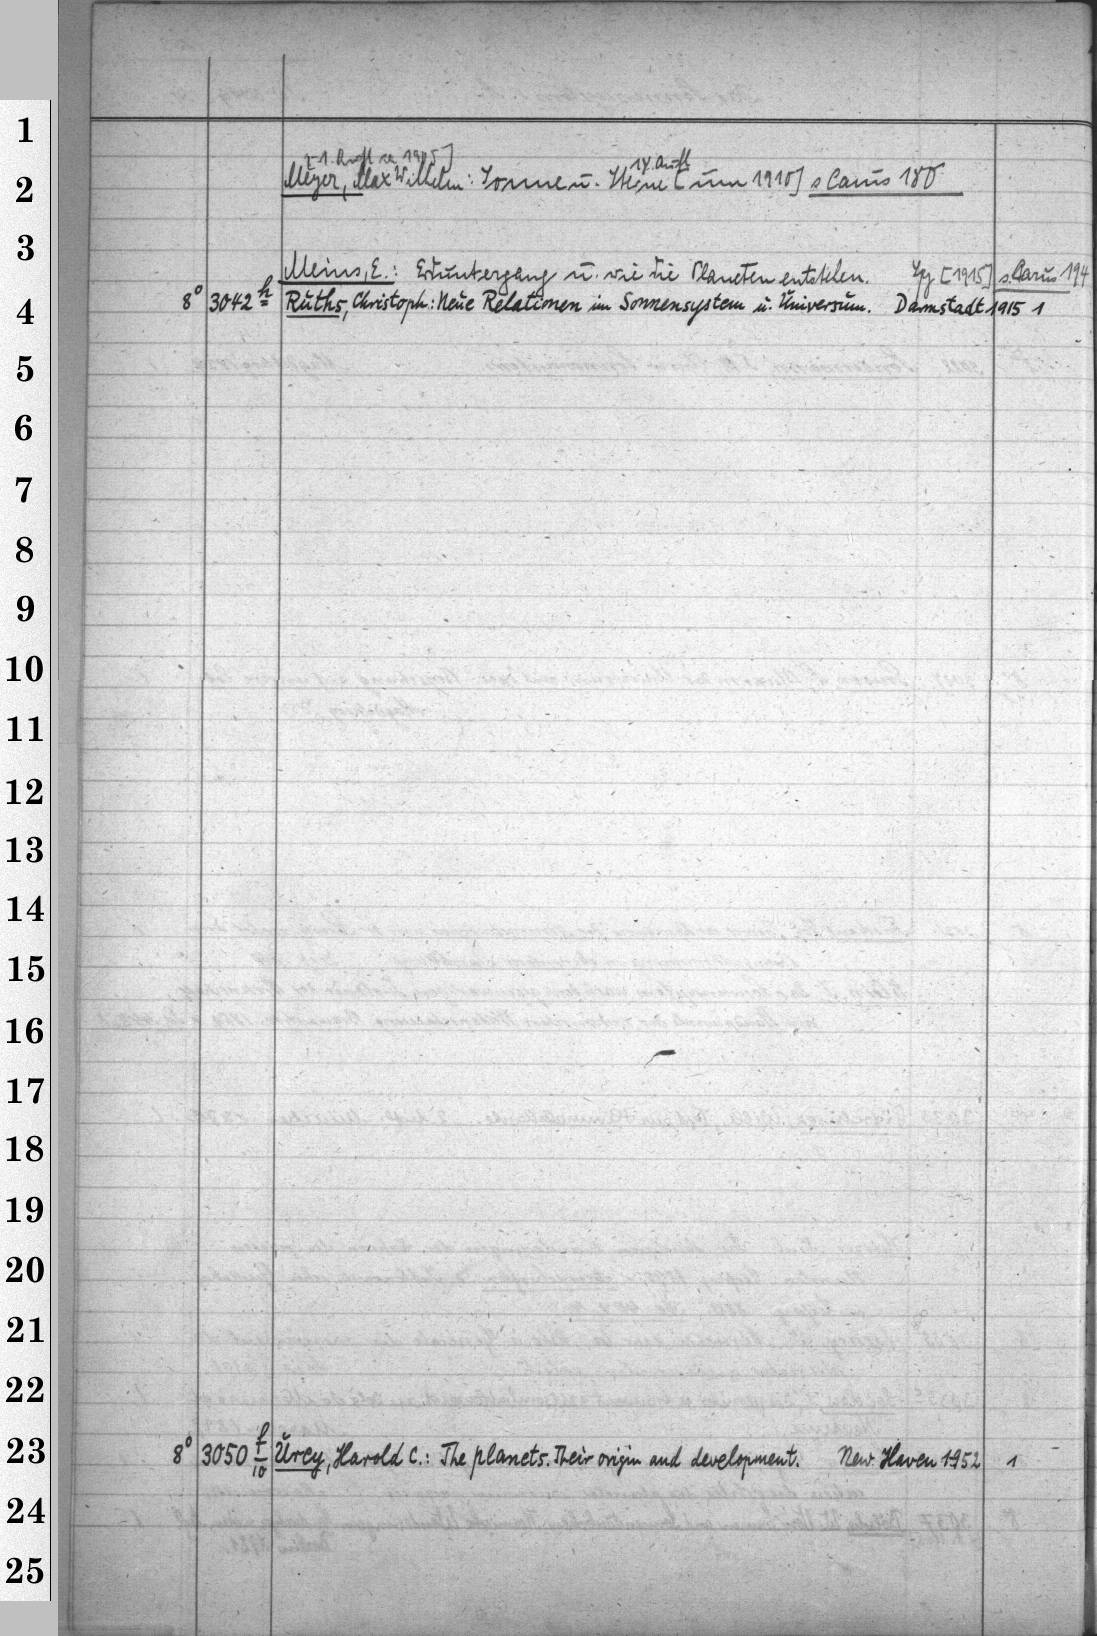 1
[1. Aufl. ca 1905] 14. Aufl
2 Meyer, Max Wilhelm: Sonne u. Sterne [um 1910] s Carus 180
3 Meins, E.: Erduntergang u. wie die Planeten entstehen. Lpz. [1915] s. Carus 194
4 8° 3042 h Ruths, Christoph.: Neue Relationen im Sonnensystem u. Universum. Darmstadt 1915 1
5
6
7
8
9
10
11
12
13
14
15
16
17
18
19
20
21
22
23 8° 3050 f/10 Urey, Harold C.: The planets. Their origin and development. New Haven 1952 1
24
25